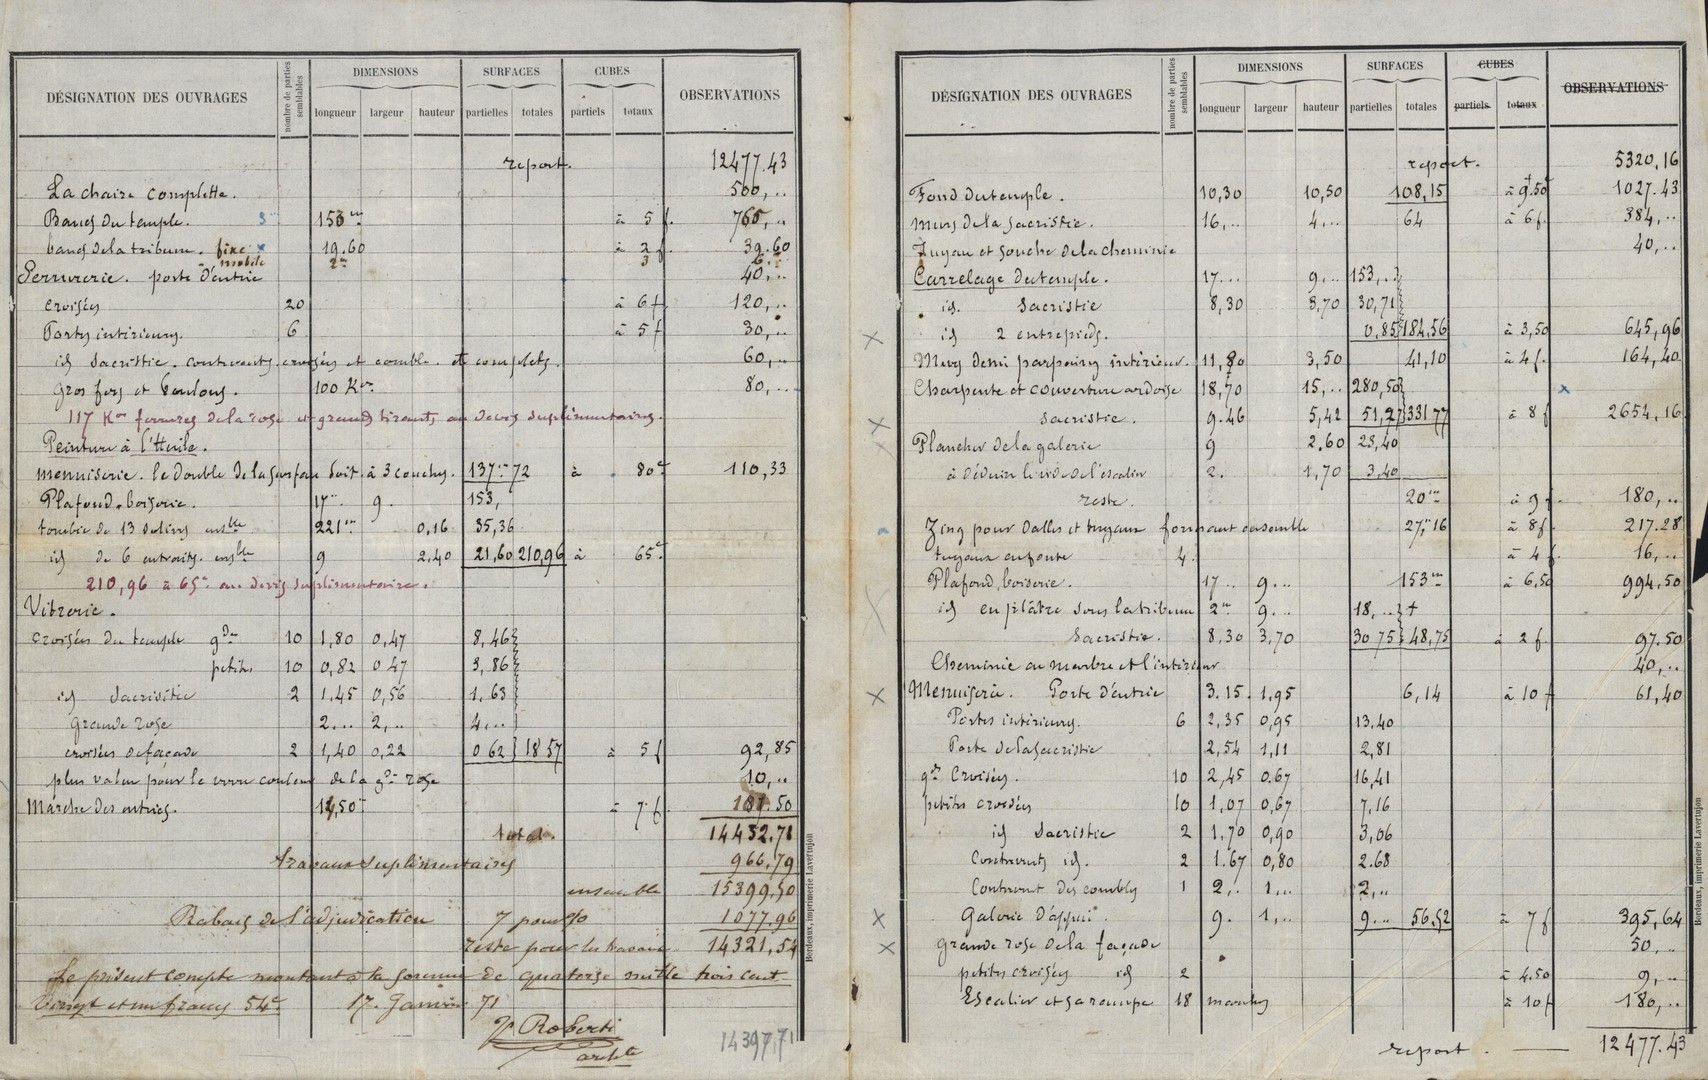 DÉSIGNATION DES OUVRAGES nombre de parties semblables DIMENSIONS longueur largeur hauteur SURFACES partielles totales CUBES partiels totaux OBSERVATIONS
report. 12477.43
La chaire complette. 500,..
Bancs du temple. 153 m à 5 f. 765,..
bancs de la tribune. fixe 19.60 à 2 f. 39.60
mobile 2 m 3 6.
Serrurerie. porte d'entrie 40,..
croisées 20 à 6 f 120,..
Portes intérieurs. 6 à 5 f 30,..
id sacristie. contrevents, croisées et comble. et complets. 60,..
Gros fers et boulons. 100 K os. 80,..
117 K os ferrures de la rose et grands tirants, au devis suplimentaires.
Peinture à l'Huile.
menuiserie. le double de la surface soit à 3 couches. 137 m 72 à 80 c 110,33
Plafond. boiserie. 17 m 9. 153,
tombée de 13 solives ens ble 221 m 0,16 35,36
id de 6 entraits. ens ble 9 2,40 21,60 210,96 à 65 c
210,96 à 65 c au devis suplimentaire.
Vitrerie.
croisées du temple g des 10 1,80 0,47 8,46
petites 10 0,82 0,47 3,86
id Sacristie 2 1,45 0,56 1,63
Grande rose 2,.. 2,.. 4,..
croisées de façade 2 1,40 0,22 0 62 18 57 à 5 f 92,85
plus valeur pour le verre couleur de la g de rose 10,..
Marche des entries. 14,50 à 7 f. 101.50
total. 14432.71
travaux suplimentaires 966,79
ensemble 15399,50
Rabais de l'adjudication 7 pour % 1077.96
reste pour les travaux 14321.54
Le présent compte montant à la somme de quatorse mille trois cent
vingt et un francs 54 c 17. Janvier 71
P. Roberti
archte
14397,71
Bordeaux, imprimerie Lavertujon
DÉSIGNATION DES OUVRAGES nombre de parties semblables DIMENSIONS longueur largeur hauteur SURFACES partielles totales CUBES partiels totaux OBSERVATIONS
report. 5320,16
Fond du temple. 10,30 10,50 108,15 à 9.50 1027.43
murs de la sacristie. 16,.. 4,.. 64 à 6 f. 384,..
Tuyau et souche de la cheminie 40,..
Carrelage du temple. 17... 9,.. 153,..
id. Sacristie 8,30 3,70 30,71
id 2 entrepieds. 0,85 184,56 à 3,50 645,96
Murs demi parpaings intérieur. 11,80 3,50 41,10 à 4 f. 164,40
Charpente et couverture ardoise 18,70 15,.. 280,50
sacristie. 9.46 5,42 51,27 331 77 à 8 f 2654,16
Plancher de la galerie 9 2.60 23,40
à déduire le vide de l'escalier 2. 1,70 3,40
reste. 20 m à 9 f. 180,..
Zing pour dalles et tuyaux formant ensemble 27, m 16 à 8 f. 217.28
tuyaux en fonte 4. à 4 f. 16,..
Plafond, boiserie. 17.. 9... 153 m à 6,50 994.50
id en plâtre sous la tribune 2 m 9... 18,..
Sacristie. 8,30 3,70 30 75 48,75 à 2 f. 97.50
Cheminie en marbre et l'intérieur 40,..
Menuiserie. Porte d'entrie 3.15. 1,95 6,14 à 10 f 61,40
Portes intérieurs. 6 2,35 0,95 13.40
Porte de la Sacristie 2,54 1,11 2,81
g des Croisées. 10 2,45 0.67 16,41
petites croisées 10 1,07 0,67 7,16
id Sacristie 2 1,70 0,90 3,06
Contrevents id. 2 1.67 0,80 2.68
Contrevent des combles 1 2,.. 1,.. 2,..
Galerie D'appui. 9. 1,.. 9... 56.52 à 7 f 395,64
Grande rose de la façade 50,..
petites croisées id 2 à 4.50 9,..
Escalier et sa rampe 18 marches à 10 f 180,..
report. 12477.43
Bordeaux, imprimerie Lavertujon